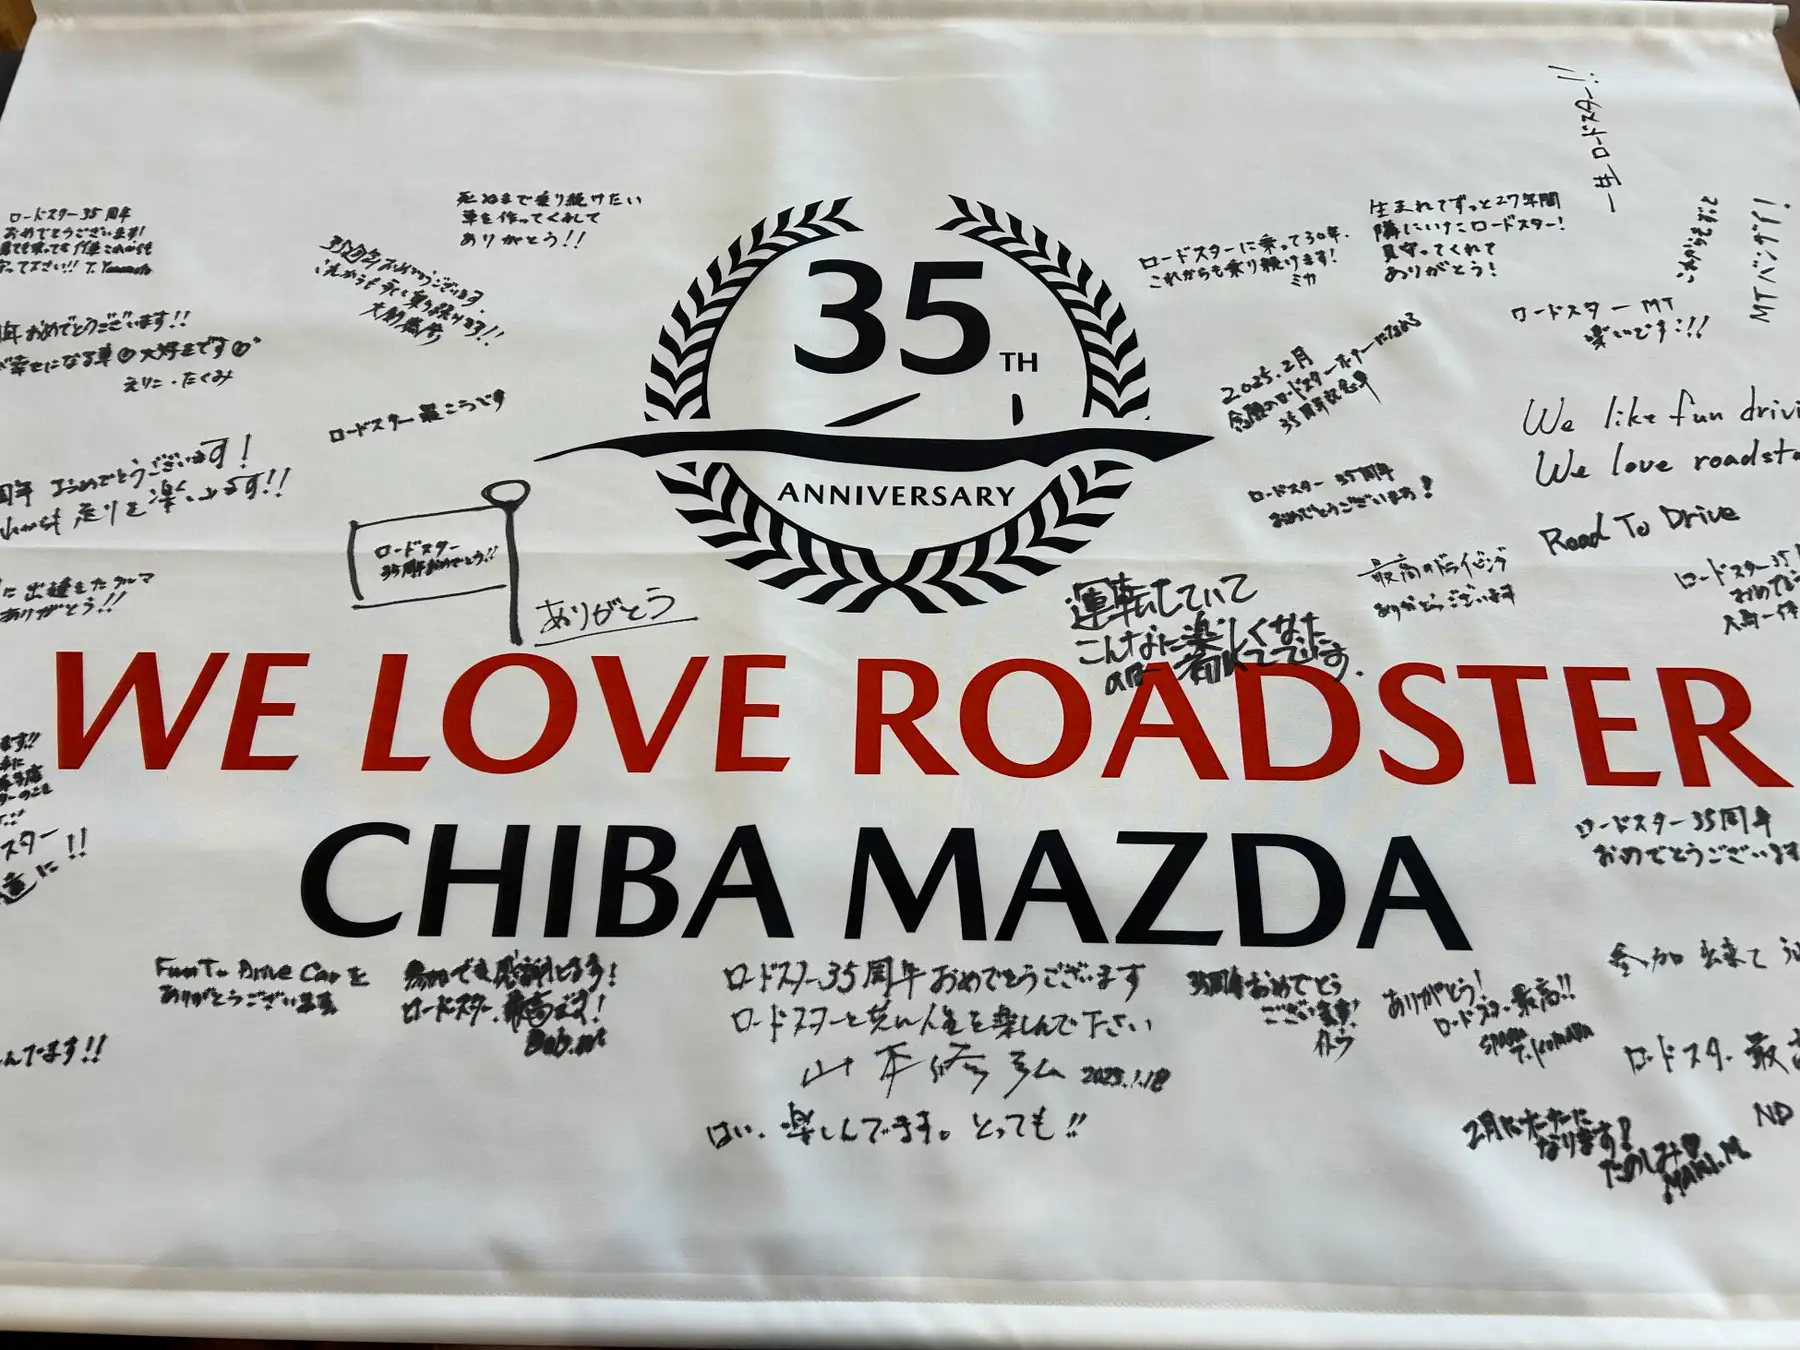 ロードスター35周年
おめでとうございます!
死ぬまで乗り続けたい
車を作ってくれて
ありがとう!!
35周年おめでとうございます。
これからも永く乗り続けます!!
年おめでとうございます!!
幸せになる車 大好きです
えりこ・たくみ
ロードスター最こうです
周年 おめでとうございます!
走りを楽しみます!!
ロードスター
35周年おめでとう!!
ありがとう
ありがとう!!
35TH
ANNIVERSARY
ロードスターに乗って30年、
これからも乗り続けます!
ミカ
生まれてずっと27年間
隣にいたロードスター!
見守ってくれて
ありがとう!
一生ロードスター!!
ロードスター MT
楽しいです!!
2025.2月
念願のロードスターオーナーに
35周年記念車
We like fun drivi
We love roadste
Road To Drive
ロードスター 35周年
おめでとうございます!
最高のドライビング
ありがとうございます
ロードスター35
運転していて
こんなに楽しくなった
のは初めてです。
WE LOVE ROADSTER
CHIBA MAZDA
スター
ロードスター35周年
おめでとうございます
Fun To Drive Carを
ありがとうございます
参加でき感謝してます!
ロードスター最高です!
ロードスター35周年おめでとうございます
ロードスターと共に人生を楽しんで下さい
山本修弘 2025.1.18
はい、楽しんでます。とっても!!
35周年おめでとう
ございます!
ありがとう!
ロードスター最高!!
参加出来て
ロードスター最高
ND
2月にオーナーに
なります!
たのしみ♥
MAKI.M
んでます!!